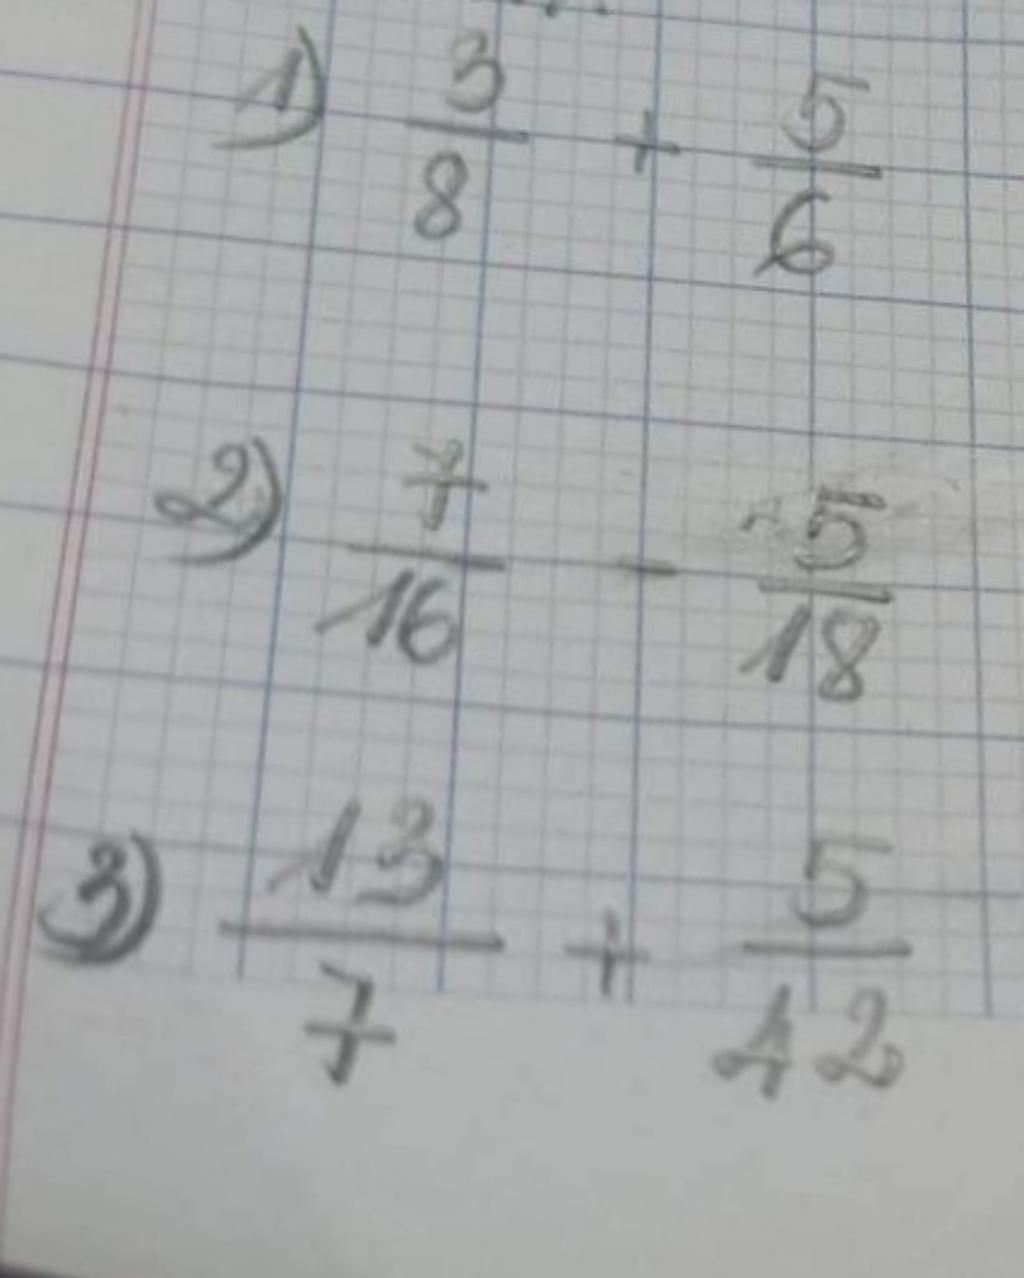 1) 3/8 + 5/6
2) 7/16 - 5/18
3) 13/7 + 5/42